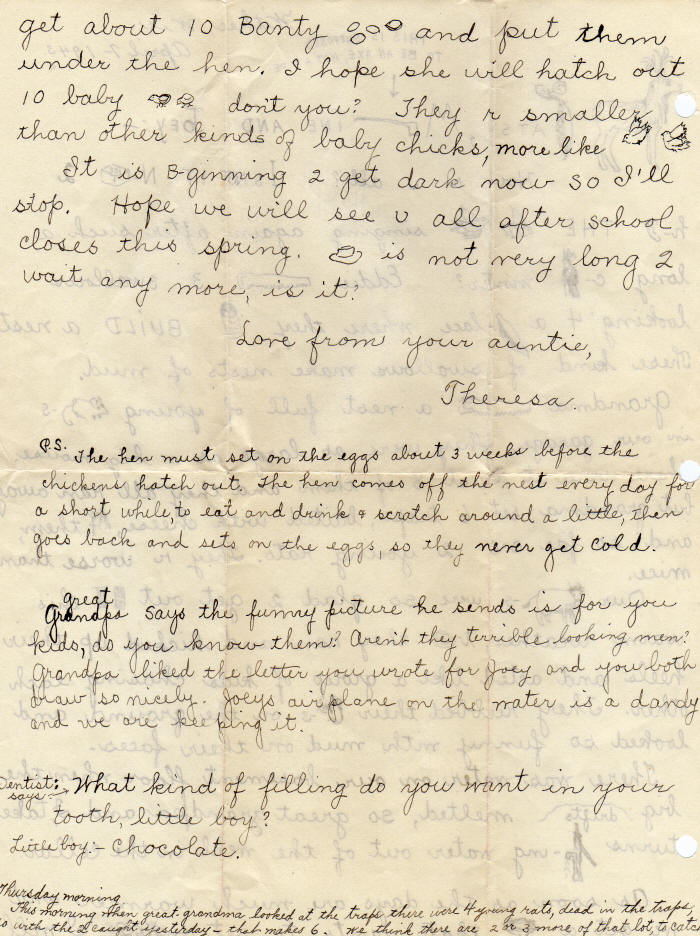 get about 10 Banty and put them
under the hen. I hope she will hatch out
10 baby don't you? They r smaller
than other kinds of baby chicks, more like
It is B-ginning 2 get dark now so I'll
stop. Hope we will see u all after school
closes this spring. is not very long 2
wait any more, is it?
Love from your auntie,
Theresa.
P.S. The hen must set on the eggs about 3 weeks before the
chickens hatch out. The hen comes off the nest every day for
a short while, to eat and drink & scratch around a little, then
goes back and sets on the eggs, so they never get cold.
great
Grandpa says the funny picture he sends is for you
kids, do you know them? Aren't they terrible looking men?
Grandpa liked the letter you wrote for Joey and you both
draw so nicely. Joeys airplane on the water is a dandy
and we are keeping it.
Dentist says:- What kind of filling do you want in your
tooth, little boy?
Little boy:- Chocolate.
Thursday morning
This morning when great grandma looked at the traps there were 4 young rats, dead in the traps,
so with the 2 caught yesterday - that makes 6. We think there are 2 or 3 more of that lot, to catch